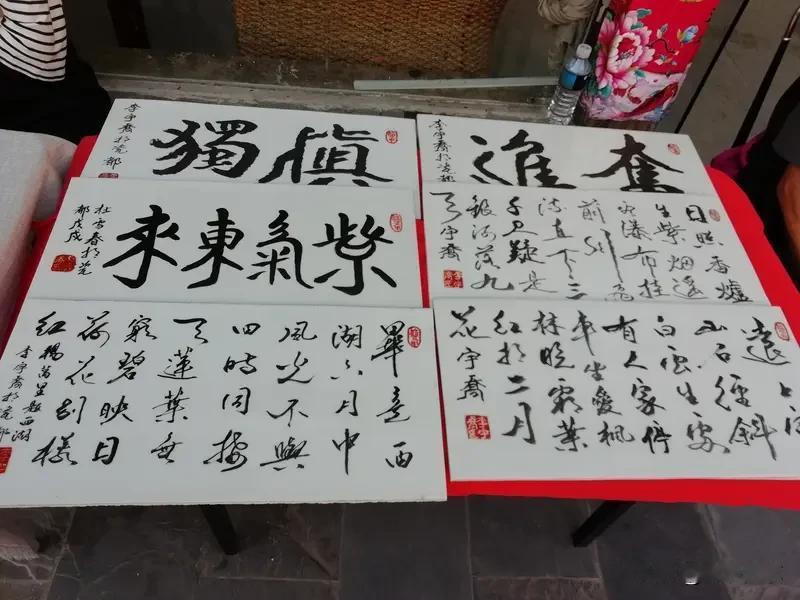 慎獨
李宇喬於瓷都
奮進
李宇喬於瓷都
紫氣東來
杜雪春於瓷
都戊戌
日照香爐
生紫烟遥
看瀑布挂
前川飛
流直下三
千尺疑是
銀河落九
天 宇喬
畢竟西
湖六月中
風光不與
四時同接
天蓮葉無
窮碧映日
荷花别樣
紅 楊萬里題西湖
李宇喬於瓷都
遠上寒
山石徑斜
白雲生處
有人家停
車坐愛楓
林晚霜葉
紅於二月
花 宇喬